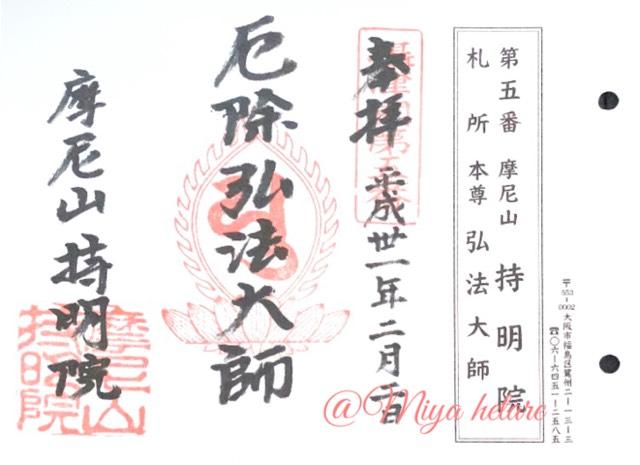 〒553-0002 大阪市福島区鷺州二ー一三ー三
☎〇六ー六四五一ー二五八五
第五番 摩尼山 持明院
札所 本尊 弘法大師
奉拝 平成卅一年二月 日
厄除弘法大師
摩尼山 持明院
摩尼山
持明院
@Miya hetare